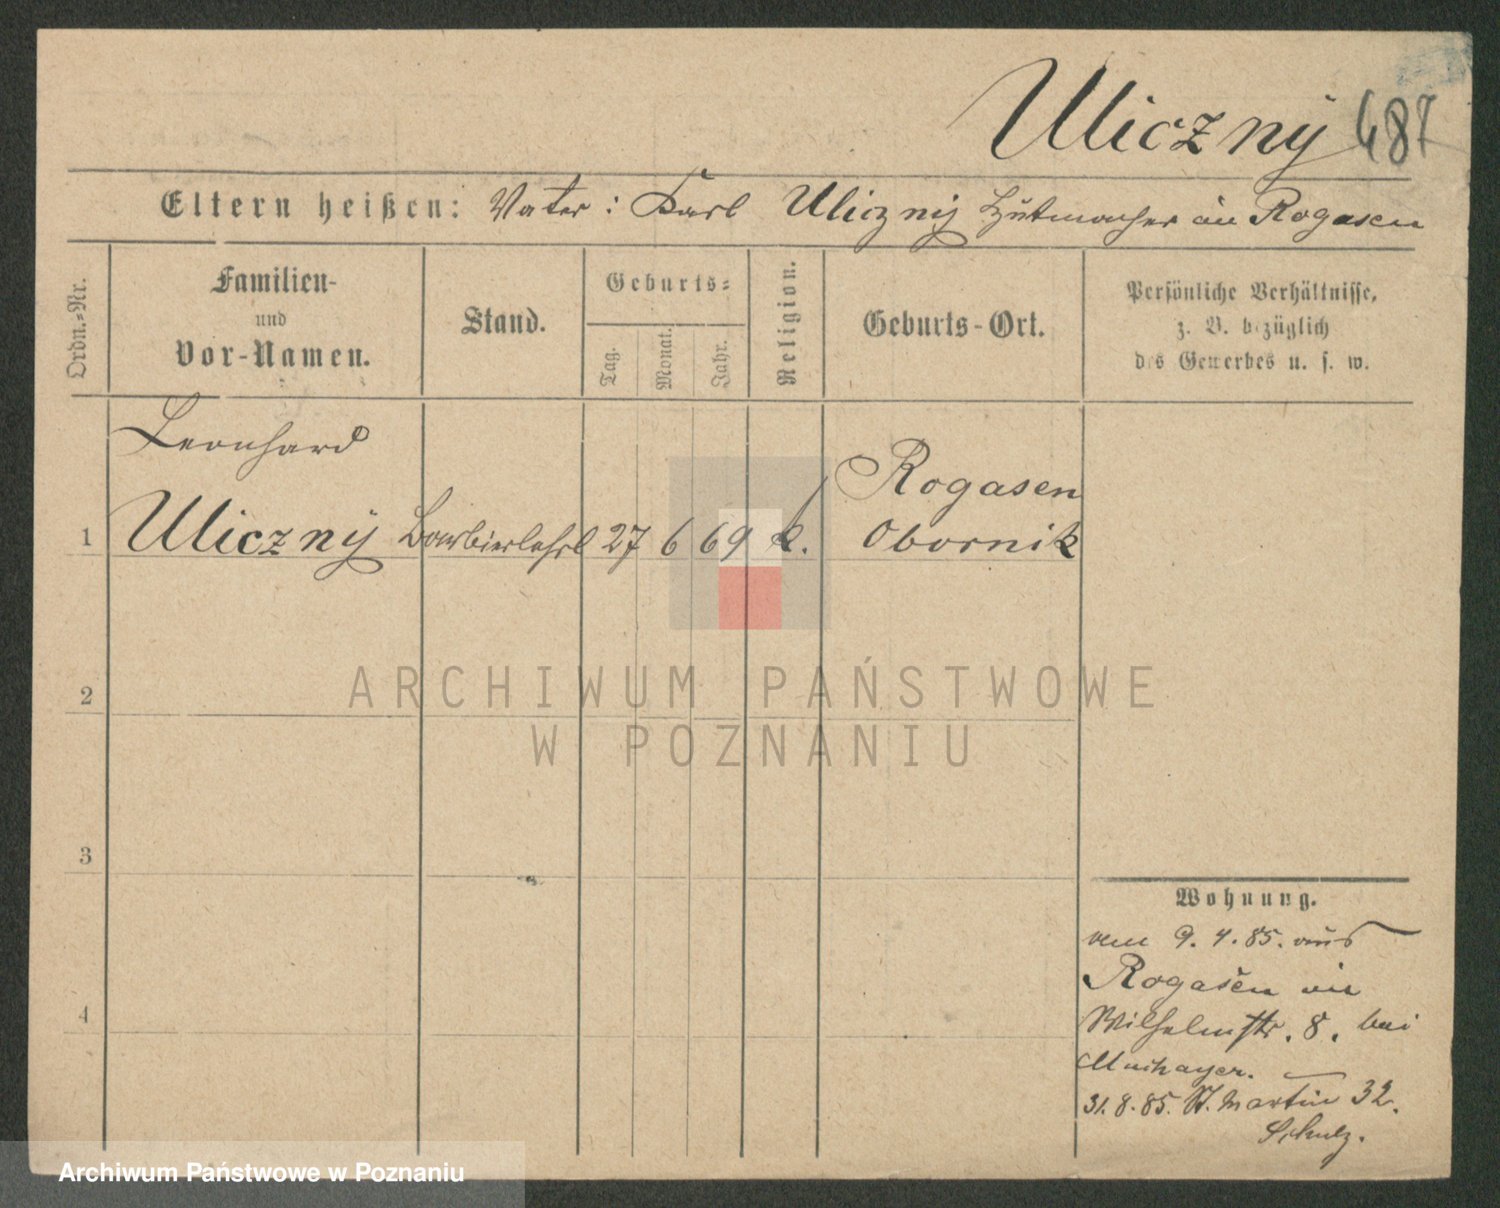 Uliczny 487
Eltern heißen: Vater: Karl Uliczny Hutmacher in Rogasen
Ordn.-Nr.
Familien-
und
Vor-Namen.
Stand.
Geburts-
Tag.
Monat.
Jahr.
Religion.
Geburts-Ort.
Persönliche Verhältnisse,
z. B. bezüglich
des Gewerbes u. s. w.
Leonhard
Rogasen
1 Uliczny Barbierlehrl 27 6 69 k. Obornik
2
3
4
Wohnung.
vom 9. 4. 85. aus
Rogasen in
Wilhelmstr. 8. bei
31. 8. 85. St. Martin 32.
Schulz.
ARCHIWUM PAŃSTWOWE
W POZNANIU
Archiwum Państwowe w Poznaniu